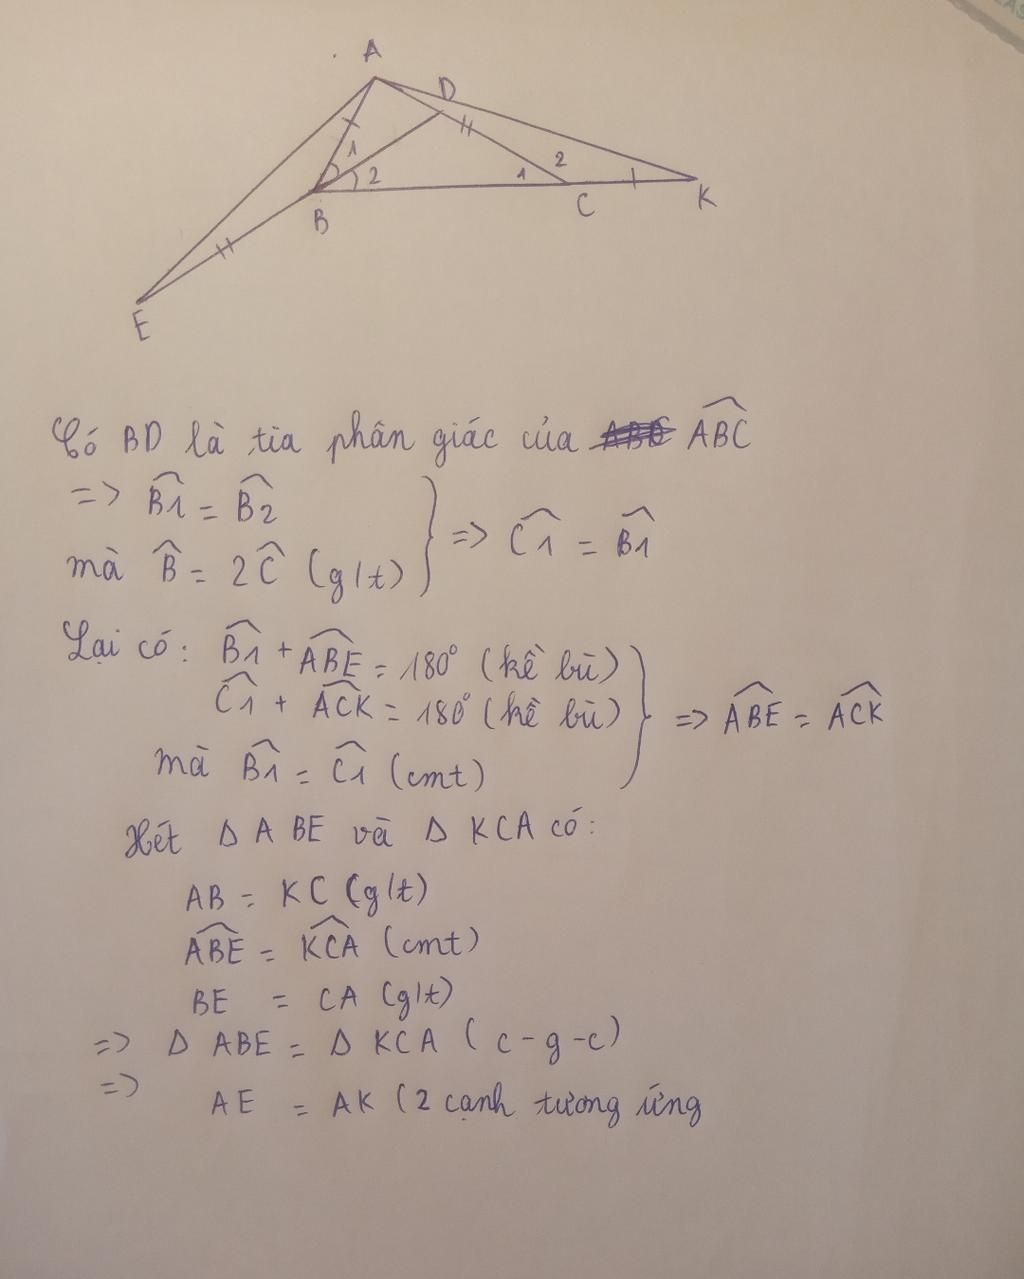 A
D
1
2
2
1
B
C
K
E
Có BD là tia phân giác của ABC
=> B1 = B2
mà B = 2C (g/t)
=> C1 = B1
Lại có: B1 + ABE = 180° (kề bù)
C1 + ACK = 180° (kề bù)
mà B1 = C1 (cmt)
=> ABE = ACK
Xét Δ ABE và Δ KCA có:
AB = KC (g/t)
ABE = KCA (cmt)
BE = CA (g/t)
=> Δ ABE = Δ KCA (c-g-c)
=>
AE = AK (2 cạnh tương ứng